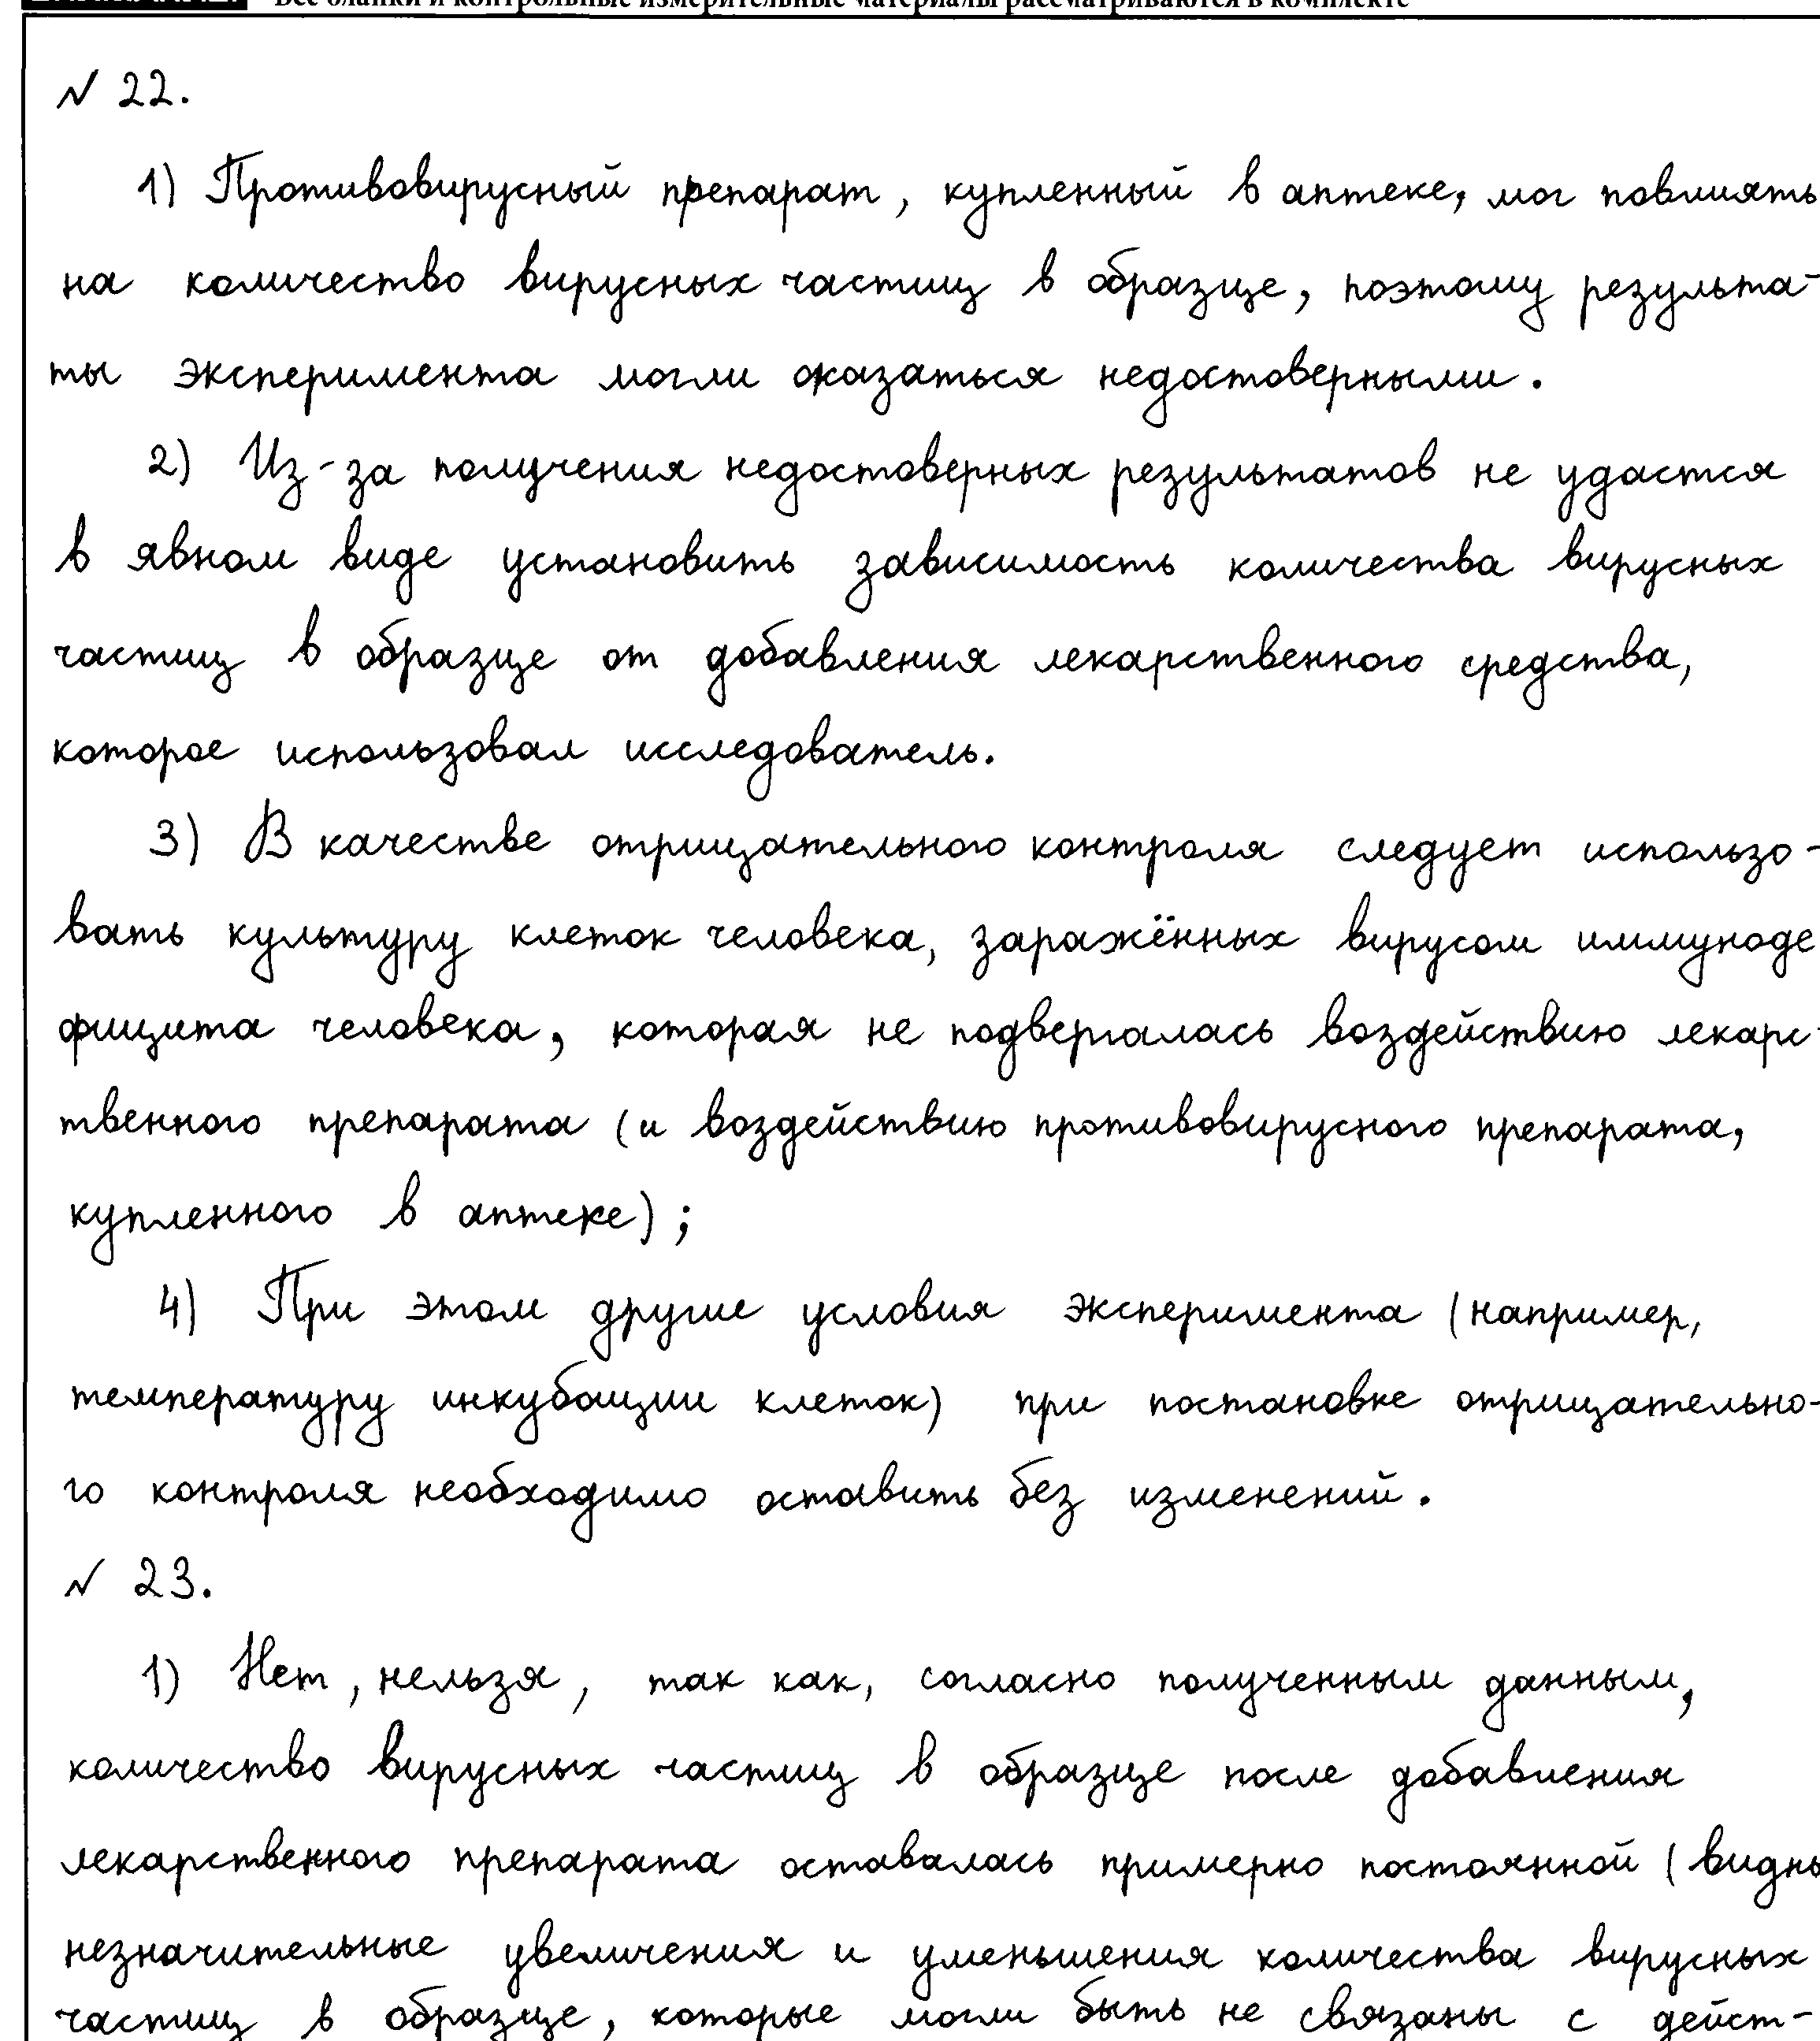 Все бланки и контрольные измерительные материалы рассматриваются в комплекте
№ 22.
1) Противовирусный препарат, купленный в аптеке, мог повлиять
на количество вирусных частиц в образце, поэтому результа-
ты эксперимента могли оказаться недостоверными.
2) Из-за получения недостоверных результатов не удастся
в явном виде установить зависимость количества вирусных
частиц в образце от добавления лекарственного средства,
которое использовал исследователь.
3) В качестве отрицательного контроля следует использо-
вать культуру клеток человека, заражённых вирусом иммуноде
фицита человека, которая не подвергалась воздействию лекарс-
твенного препарата (и воздействию противовирусного препарата,
купленного в аптеке);
4) При этом другие условия эксперимента (например,
температуру инкубации клеток) при постановке отрицательно-
го контроля необходимо оставить без изменений.
№ 23.
1) Нет, нельзя, так как, согласно полученным данным,
количество вирусных частиц в образце после добавления
лекарственного препарата оставалась примерно постоянной (видны
незначительные увеличения и уменьшения количества вирусных
частиц в образце, которые могли быть не связаны с дейст-